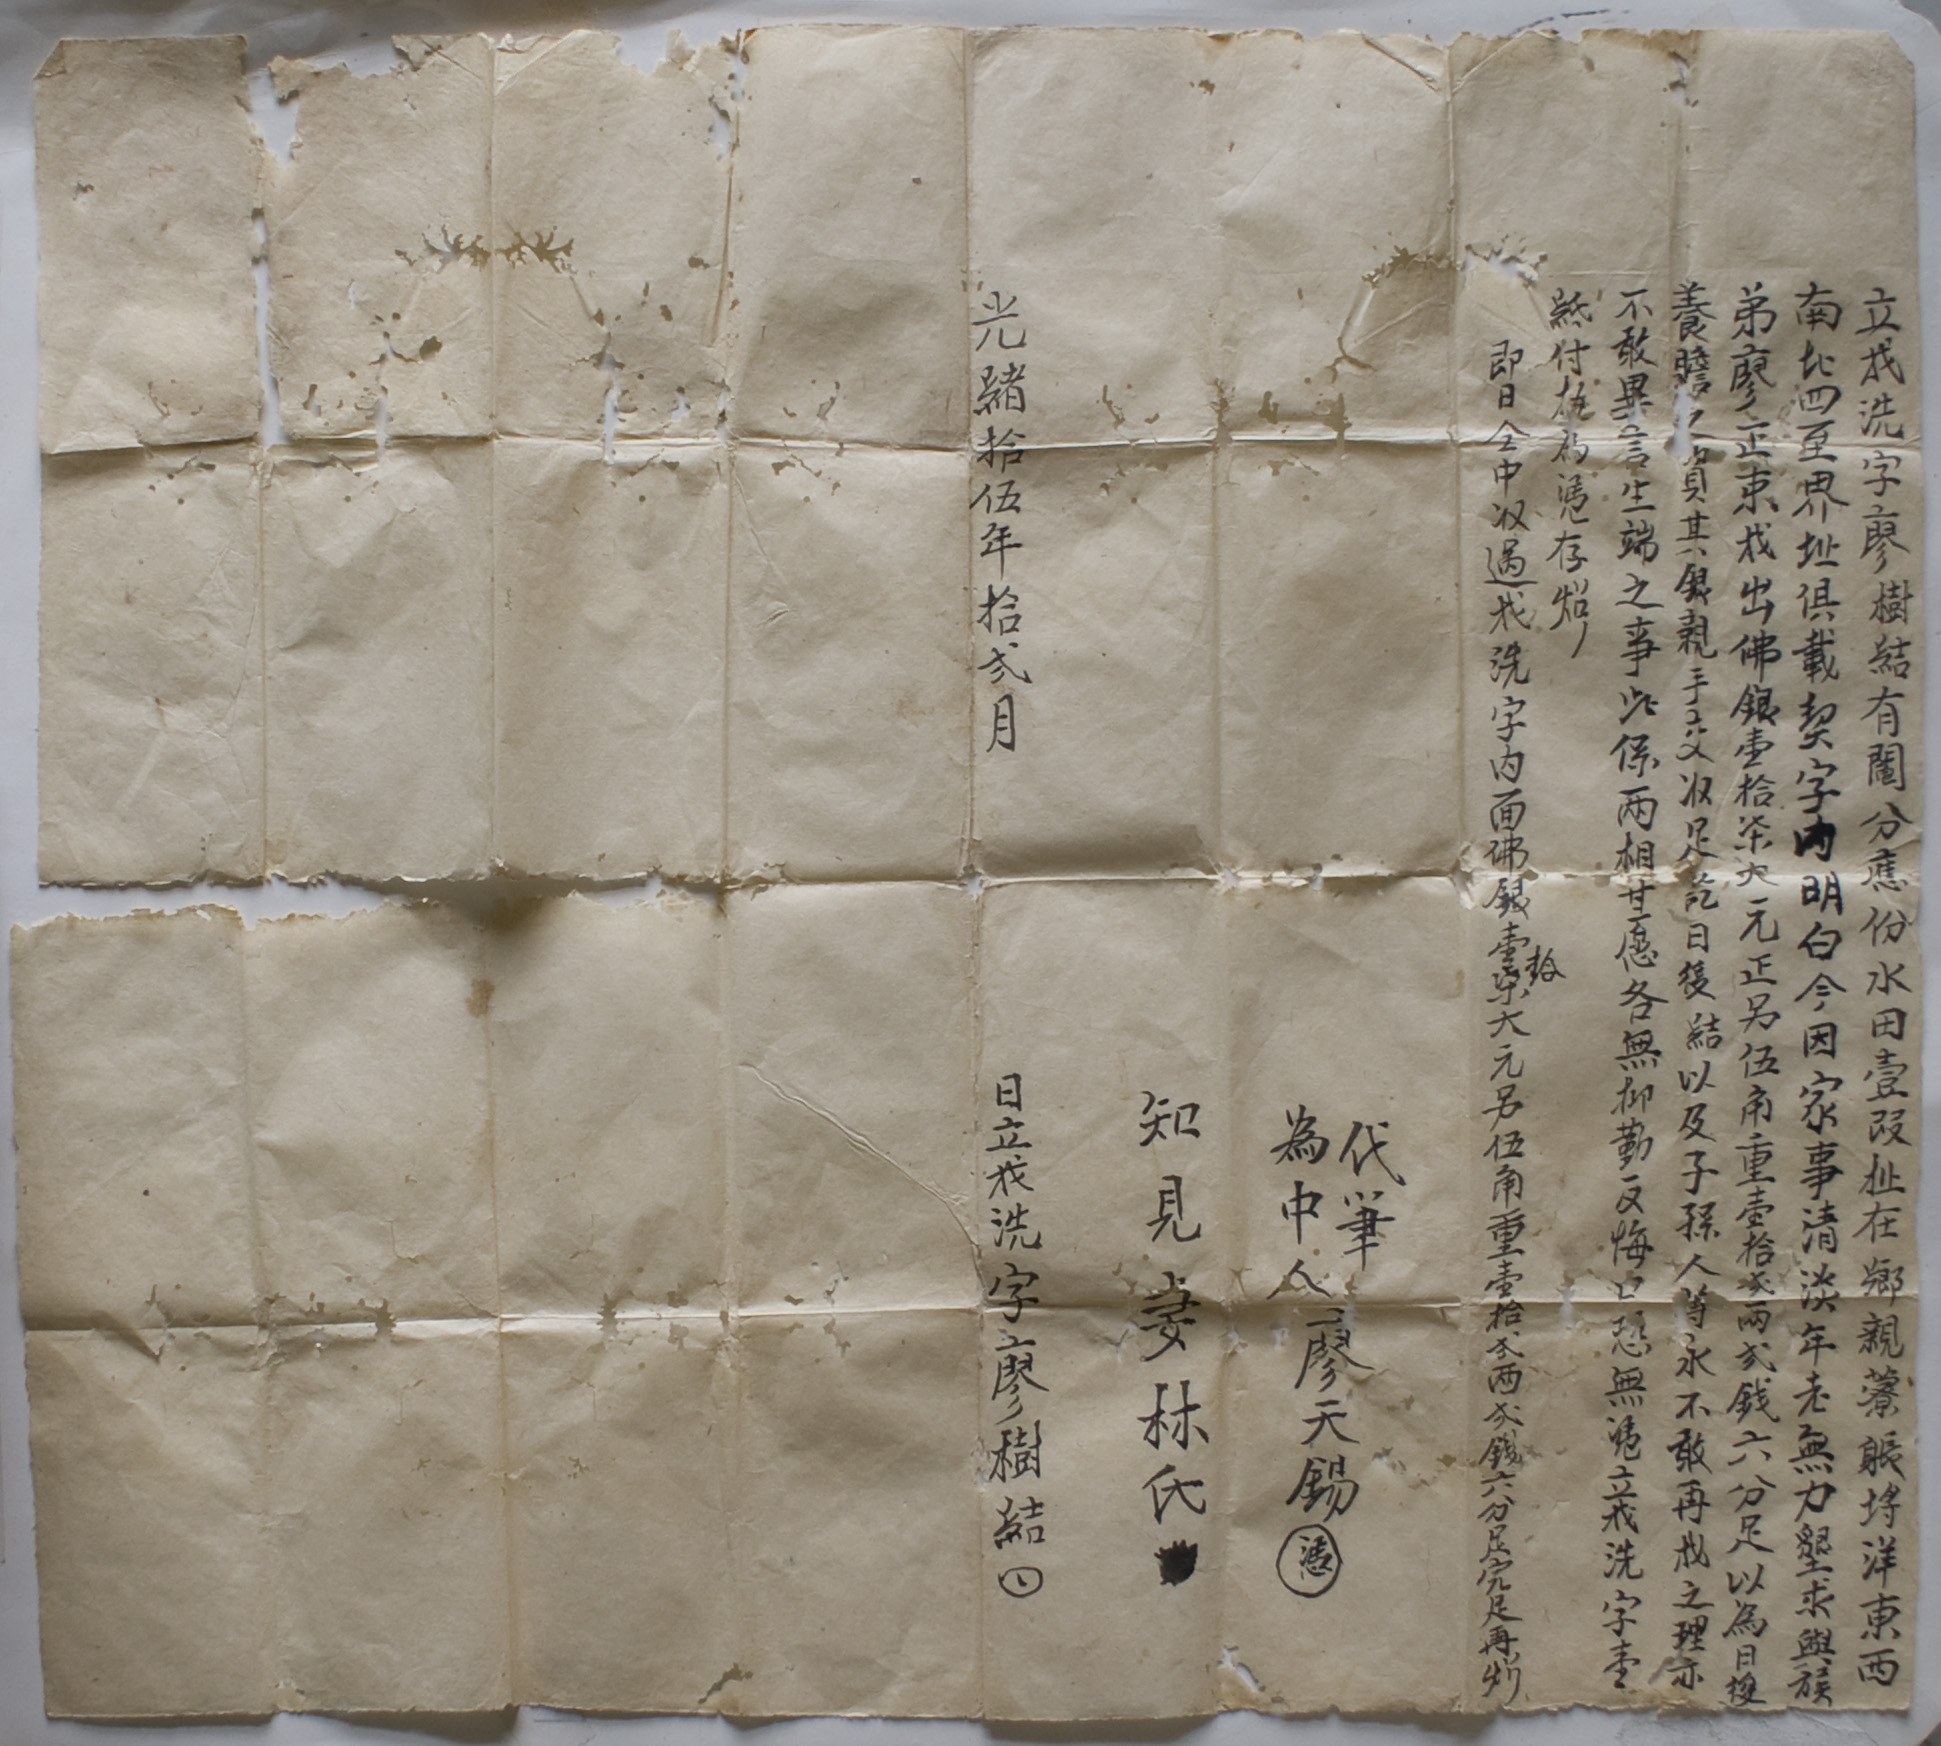 立找洗字廖樹結有鬮分應份水田壹段址在鄉親藔賬垺洋東西
南北四至界址俱載契字內明白今因家事清淡年老無力墾求與族
弟廖正東找出佛銀壹拾柒大元正另伍角重壹拾弍兩弍錢六分足以為日後
養贍之資其銀親手交收足訖日後結以及子孫人等永不敢再找之理亦
不敢異言生端之事此係兩相甘愿各無抑勒反悔口恐無憑立找洗字壹
紙付執為憑存炤
即日仝中收過找洗字內面佛銀壹拾柒大元另伍角重壹拾弍兩弍錢六分足完足再炤
代筆
為中人廖天錫 憑
知見妻林氏
光緒拾伍年拾弍月 日立找洗字廖樹結